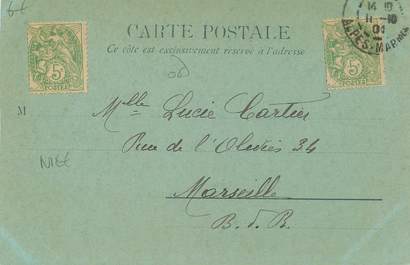 6 €
CARTE POSTALE
Ce côté est exclusivement réservé à l'adresse
5
POSTES
5
POSTES
14 10
11-10
01
ALPES-MARMES
M
Mlle Lucie Cartier
Rue de l'Olivier 34
NICE
Marseille
B. d. R.